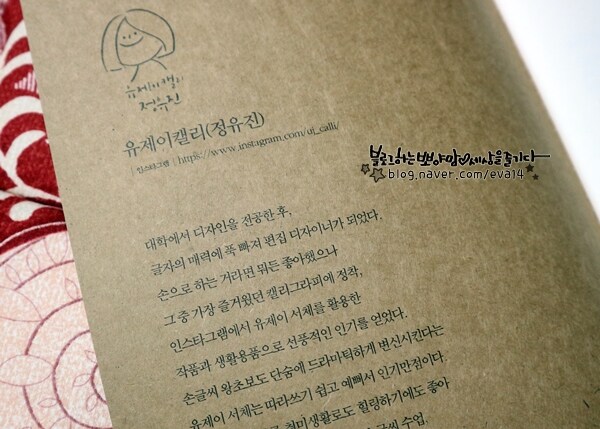 유제이캘리
정유진
유제이캘리(정유진)
| 인스타그램 | https://www.instagram.com/uj_calli/
블로그하는 뽀야맘♡세상을 즐기다
blog.naver.com/eva14
대학에서 디자인을 전공한 후,
글자의 매력에 푹 빠져 편집 디자이너가 되었다.
손으로 하는 거라면 뭐든 좋아했으나
그중 가장 즐거웠던 캘리그라피에 정착,
인스타그램에서 유제이 서체를 활용한
작품과 생활용품으로 선풍적인 인기를 얻었다.
손글씨 왕초보도 단숨에 드라마틱하게 변신시킨다는
유제이 서체는 따라쓰기 쉽고 예뻐서 인기만점이다.
취미생활로도 힐링하기에도 좋아
손글씨 수업,